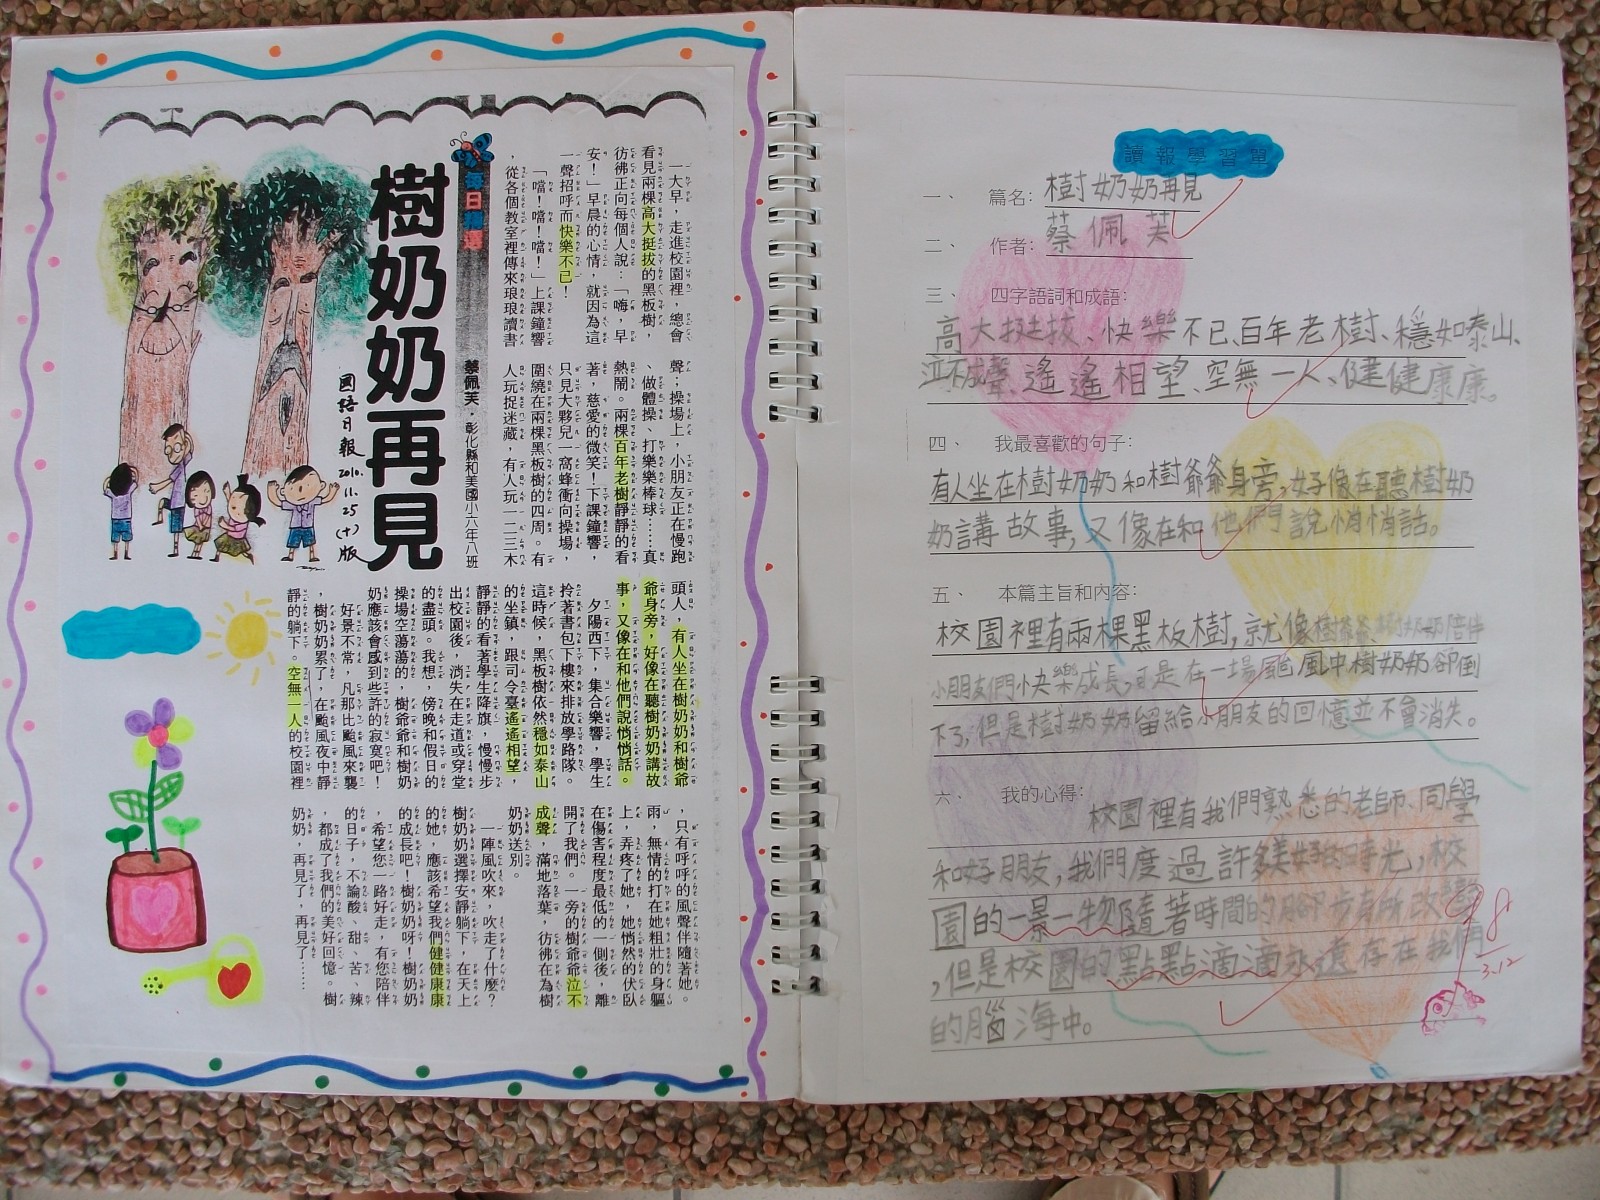 每日精選
樹奶奶再見
蔡佩芙．彰化縣和美國小六年八班
國語日報 2010.11.25 (十)版
一大早，走進校園裡，總會
看見兩棵高大挺拔的黑板樹，
彷彿正向每個人說：「嗨，早
安！」早晨的心情，就因為這
一聲招呼而快樂不已！
「噹！噹！噹！」上課鐘響
，從各個教室裡傳來琅琅讀書
聲；操場上，小朋友正在慢跑
、做體操、打樂樂棒球……真
熱鬧。兩棵百年老樹靜靜的看
著，慈愛的微笑！下課鐘響，
只見大夥兒一窩蜂衝向操場，
圍繞在兩棵黑板樹的四周。有
人玩捉迷藏，有人玩一二三木
頭人，有人坐在樹奶奶和樹爺
爺身旁，好像在聽樹奶奶講故
事，又像在和他們說悄悄話。
夕陽西下，集合樂響，學生
拎著書包下樓來排放學路隊。
這時候，黑板樹依然穩如泰山
的坐鎮，跟司令臺遙遙相望，
靜靜的看著學生降旗，慢慢步
出校園後，消失在走道或穿堂
的盡頭。我想，傍晚和假日的
操場空蕩蕩的，樹爺爺和樹奶
奶應該會感到些許的寂寞吧！
好景不常，凡那比颱風來襲
，樹奶奶累了，在颱風夜中靜
靜的躺下。空無一人的校園裡
，只有呼呼的風聲伴隨著她。
雨，無情的打在她粗壯的身軀
上，弄疼了她，她悄然的伏臥
在傷害程度最低的一側後，離
開了我們。一旁的樹爺爺泣不
成聲，滿地落葉，彷彿在為樹
奶奶送別。
一陣風吹來，吹走了什麼？
樹奶奶選擇安靜躺下，在天上
的她，應該希望我們健健康康
的成長吧！樹奶奶呀！樹奶奶
，希望您一路好走，有您陪伴
的日子，不論酸、甜、苦、辣
，都成了我們的美好回憶。樹
奶奶，再見了，再見了……
讀報學習單
一、 篇名：樹奶奶再見
二、 作者：蔡佩芙
三、 四字語詞和成語：
高大挺拔、快樂不已、百年老樹、穩如泰山、
泣不成聲、遙遙相望、空無一人、健健康康。
四、 我最喜歡的句子：
有人坐在樹奶奶和樹爺爺身旁，好像在聽樹奶
奶講故事，又像在和他們說悄悄話。
五、 本篇主旨和內容：
校園裡有兩棵黑板樹，就像樹爺爺、樹奶奶陪伴
小朋友們快樂成長，可是在一場颱風中樹奶奶卻倒
下了，但是樹奶奶留給小朋友的回憶並不會消失。
六、 我的心得：
校園裡有我們熟悉的老師、同學
和好朋友，我們度過許多美好的時光，校
園的一景一物隨著時間的腳步有所改變
，但是校園的點點滴滴永遠存在我們
的腦海中。
98+
3.12